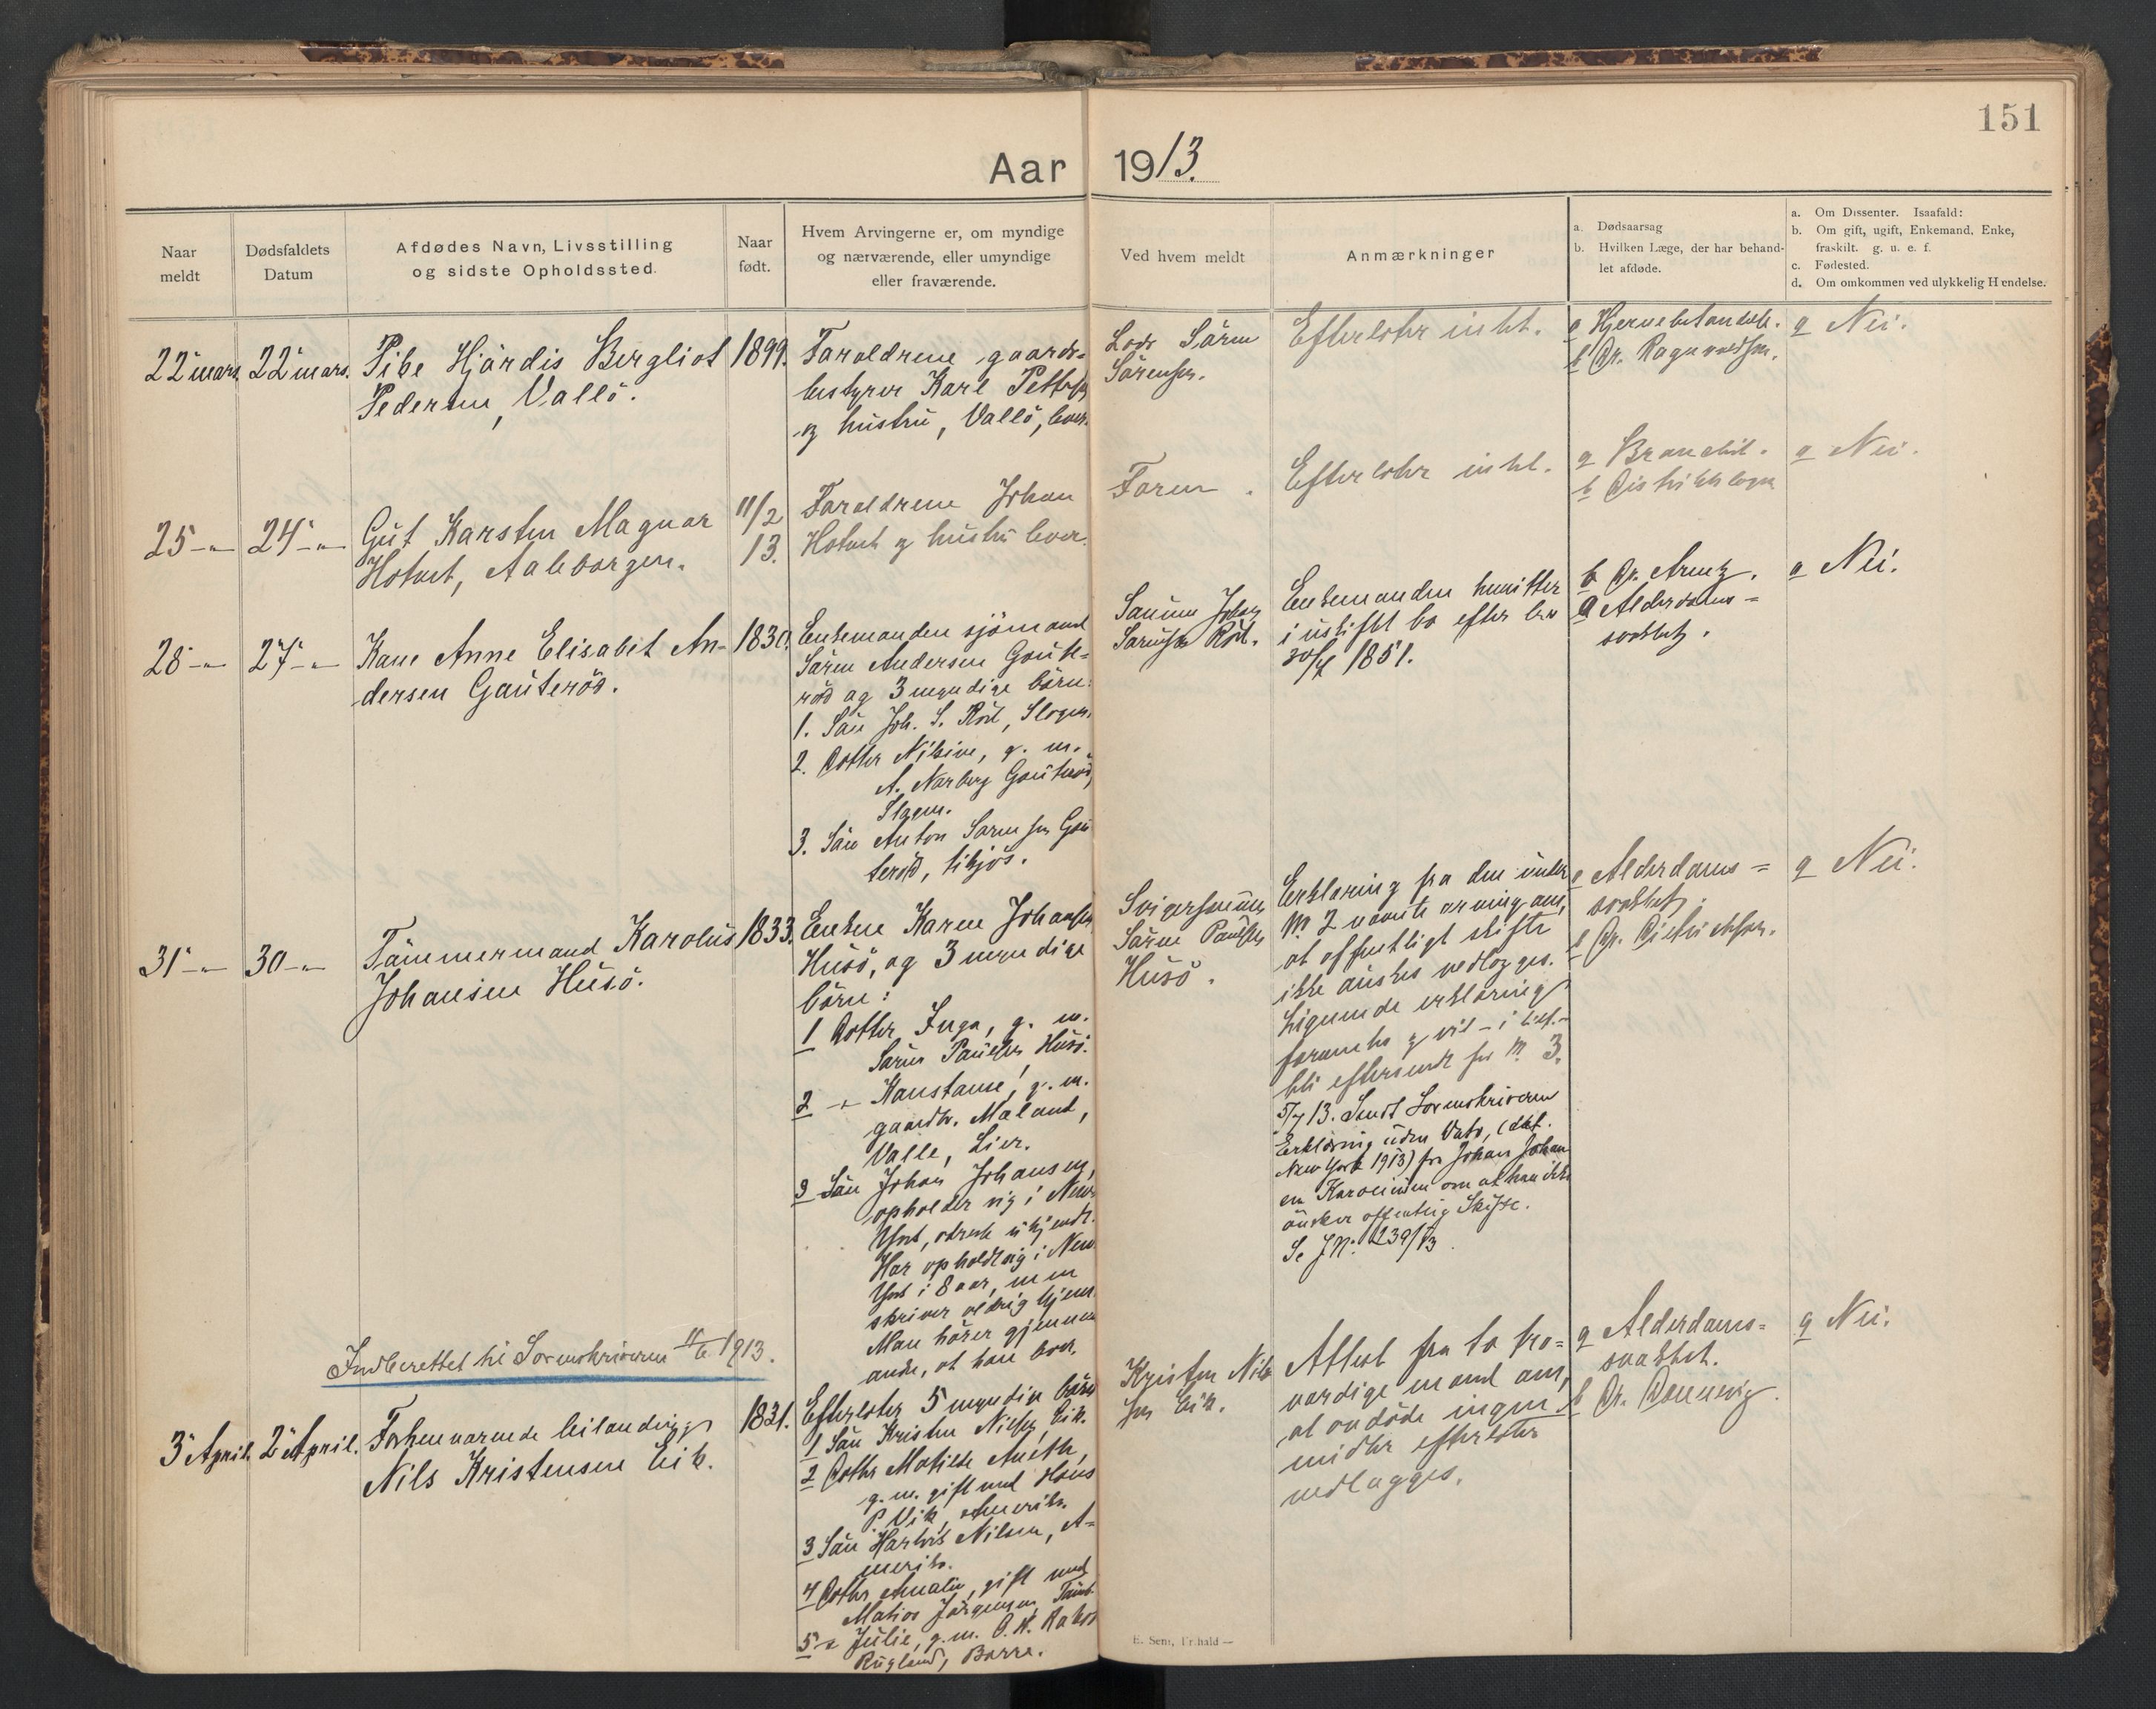 151
Aar 1913.
Naar meldt
Dødsfaldets Datum
Afdødes Navn, Livsstilling og sidste Opholdssted.
Naar født.
Hvem Arvingerne er, om myndige og nærværende, eller umyndige eller fraværende.
Ved hvem meldt
Anmærkninger
a. Dødsaarsag
b. Hvilken Læge, der har behandlet afdøde.
a. Om Dissenter. Isaafald:
b. Om gift, ugift, Enkemand, Enke, fraskilt. g. u. e. f.
c. Fødested.
d. Om omkommen ved ulykkelig Hændelse.
22 mars. 22 mars.
Pike Hjørdis Bergliot
Pedersen, Vallö.
1899.
Forældrene gaards-
bestyrer Karl Petters
og hustru, Vallö, lever.
Lods Sören
Sörensen.
Efterlater intet.
a Hjernebetændels.
b Dr. Ragnvaldsen.
a Nei.
25 -"- 24 -"-
Gut Karsten Magnar
Hotvet, Aaleborgen.
11/2
13.
Forældrene Johan
Hotvet og hustru lever.
Faren.
Efterlater intet.
a Bronchit.
b Distriktslægen
a Nei.
28 -"- 27 -"-
Kone Anne Elisabet An-
dersen Gauteröd.
1830.
Enkemanden sjömand
Sören Andersen Gaute-
röd og 3 myndige börn:
1. Sön Joh. S. Röd, Slagen.
2. Dotter Nilsine, g. m.
A. Narberg Gauteröd,
Slagen.
3. Sön Anton Sörensen Gau
teröd, tilsjös.
Sönnen Johan
Sörensen Röd.
Enkemanden hensitter
i uskiftet bo efter lov
30/7 1851.
b Dr. Arentz.
a Alderdoms-
svakhet.
a Nei.
31 -"- 30 -"-
Tömmermand Karolius
Johansen Husö.
1833.
Enken Karen Johansen
Husö, og 3 myndige
börn:
1 Dotter Inga, g. m.
Sören Paulsen Husö.
2 -"- Konstanse, g. m.
gaardbr. Møland,
Valle, Lier.
3 Sön Johan Johansen,
opholder sig i New
York, adresse ukjendt.
Har opholdt sig i New
York i 8 aar, men
skriver aldrig hjem.
Man hörer gjennem
andre, at han lever.
Svigersönnen
Sören Paulsen
Husö.
Erklæring fra den under
No 2 nævnte arving om,
at offentligt skifte
ikke önskes vedlægges.
Lignende erklæring
forventes og vil - i tilf. -
bli eftersendt fra No 3.
5/7 13. Sendt Sorenskriveren
Erklæring uden Dato, (dat.
New York 1913) fra Johan Johan
en Karoliusen om at han ikke
önsker offentlig Skifte.
Se J No. 239/13
a Alderdoms-
svakhet.
b Dr. Didrichsen.
a Nei.
Indberettet til Sorenskriveren 11/6 1913.
3 April. 2 April.
Forhenværende leilænding
Nils Kristensen Eik.
1821.
Efterlater 5 myndige börn
1 Sön Kristen Nilsen Eik.
2 Dotter Matilde Anette,
g. m. gift med Hans
P. Vik, Amerika.
3 Sön Hartvik Nilsen, A-
merika.
4 Dotter Amalie, gift med
Matias Jörgensen, Tönsb.
5 -"- Julie, g. m. O. H.
Rugland, Borre.
Kristen Nils
sen Eik.
Attest fra to tro-
værdige mænd om,
at avdöde ingen
midler efterlater
vedlægges.
a Alderdoms-
svakhet.
b Dr. Dannevig.
a Nei.
E. Sem, Fr.hald —